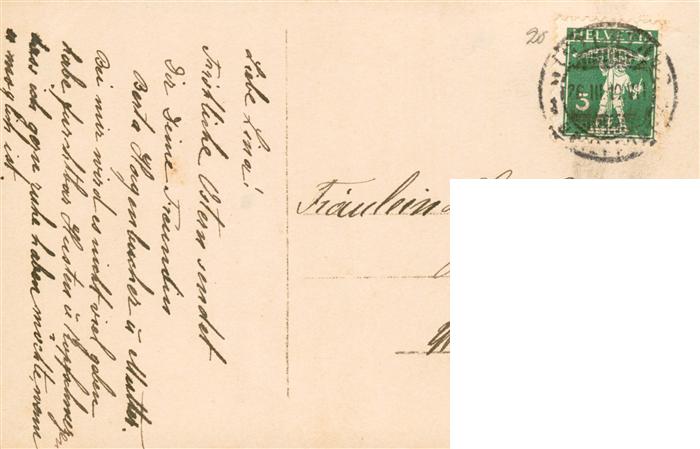 Liebe Lina!
Fröhliche Ostern sendet
Dir Deine Freundin
Berta Hagenbucher u Mutter.
Bei mir wird es nicht viel geben
habe furchtbar Husten u Kopfschmerzen
dass ich gern ruhe haben möchte, wenn
es möglich ist.
20
HELVETIA
5
26.III
Fräulein